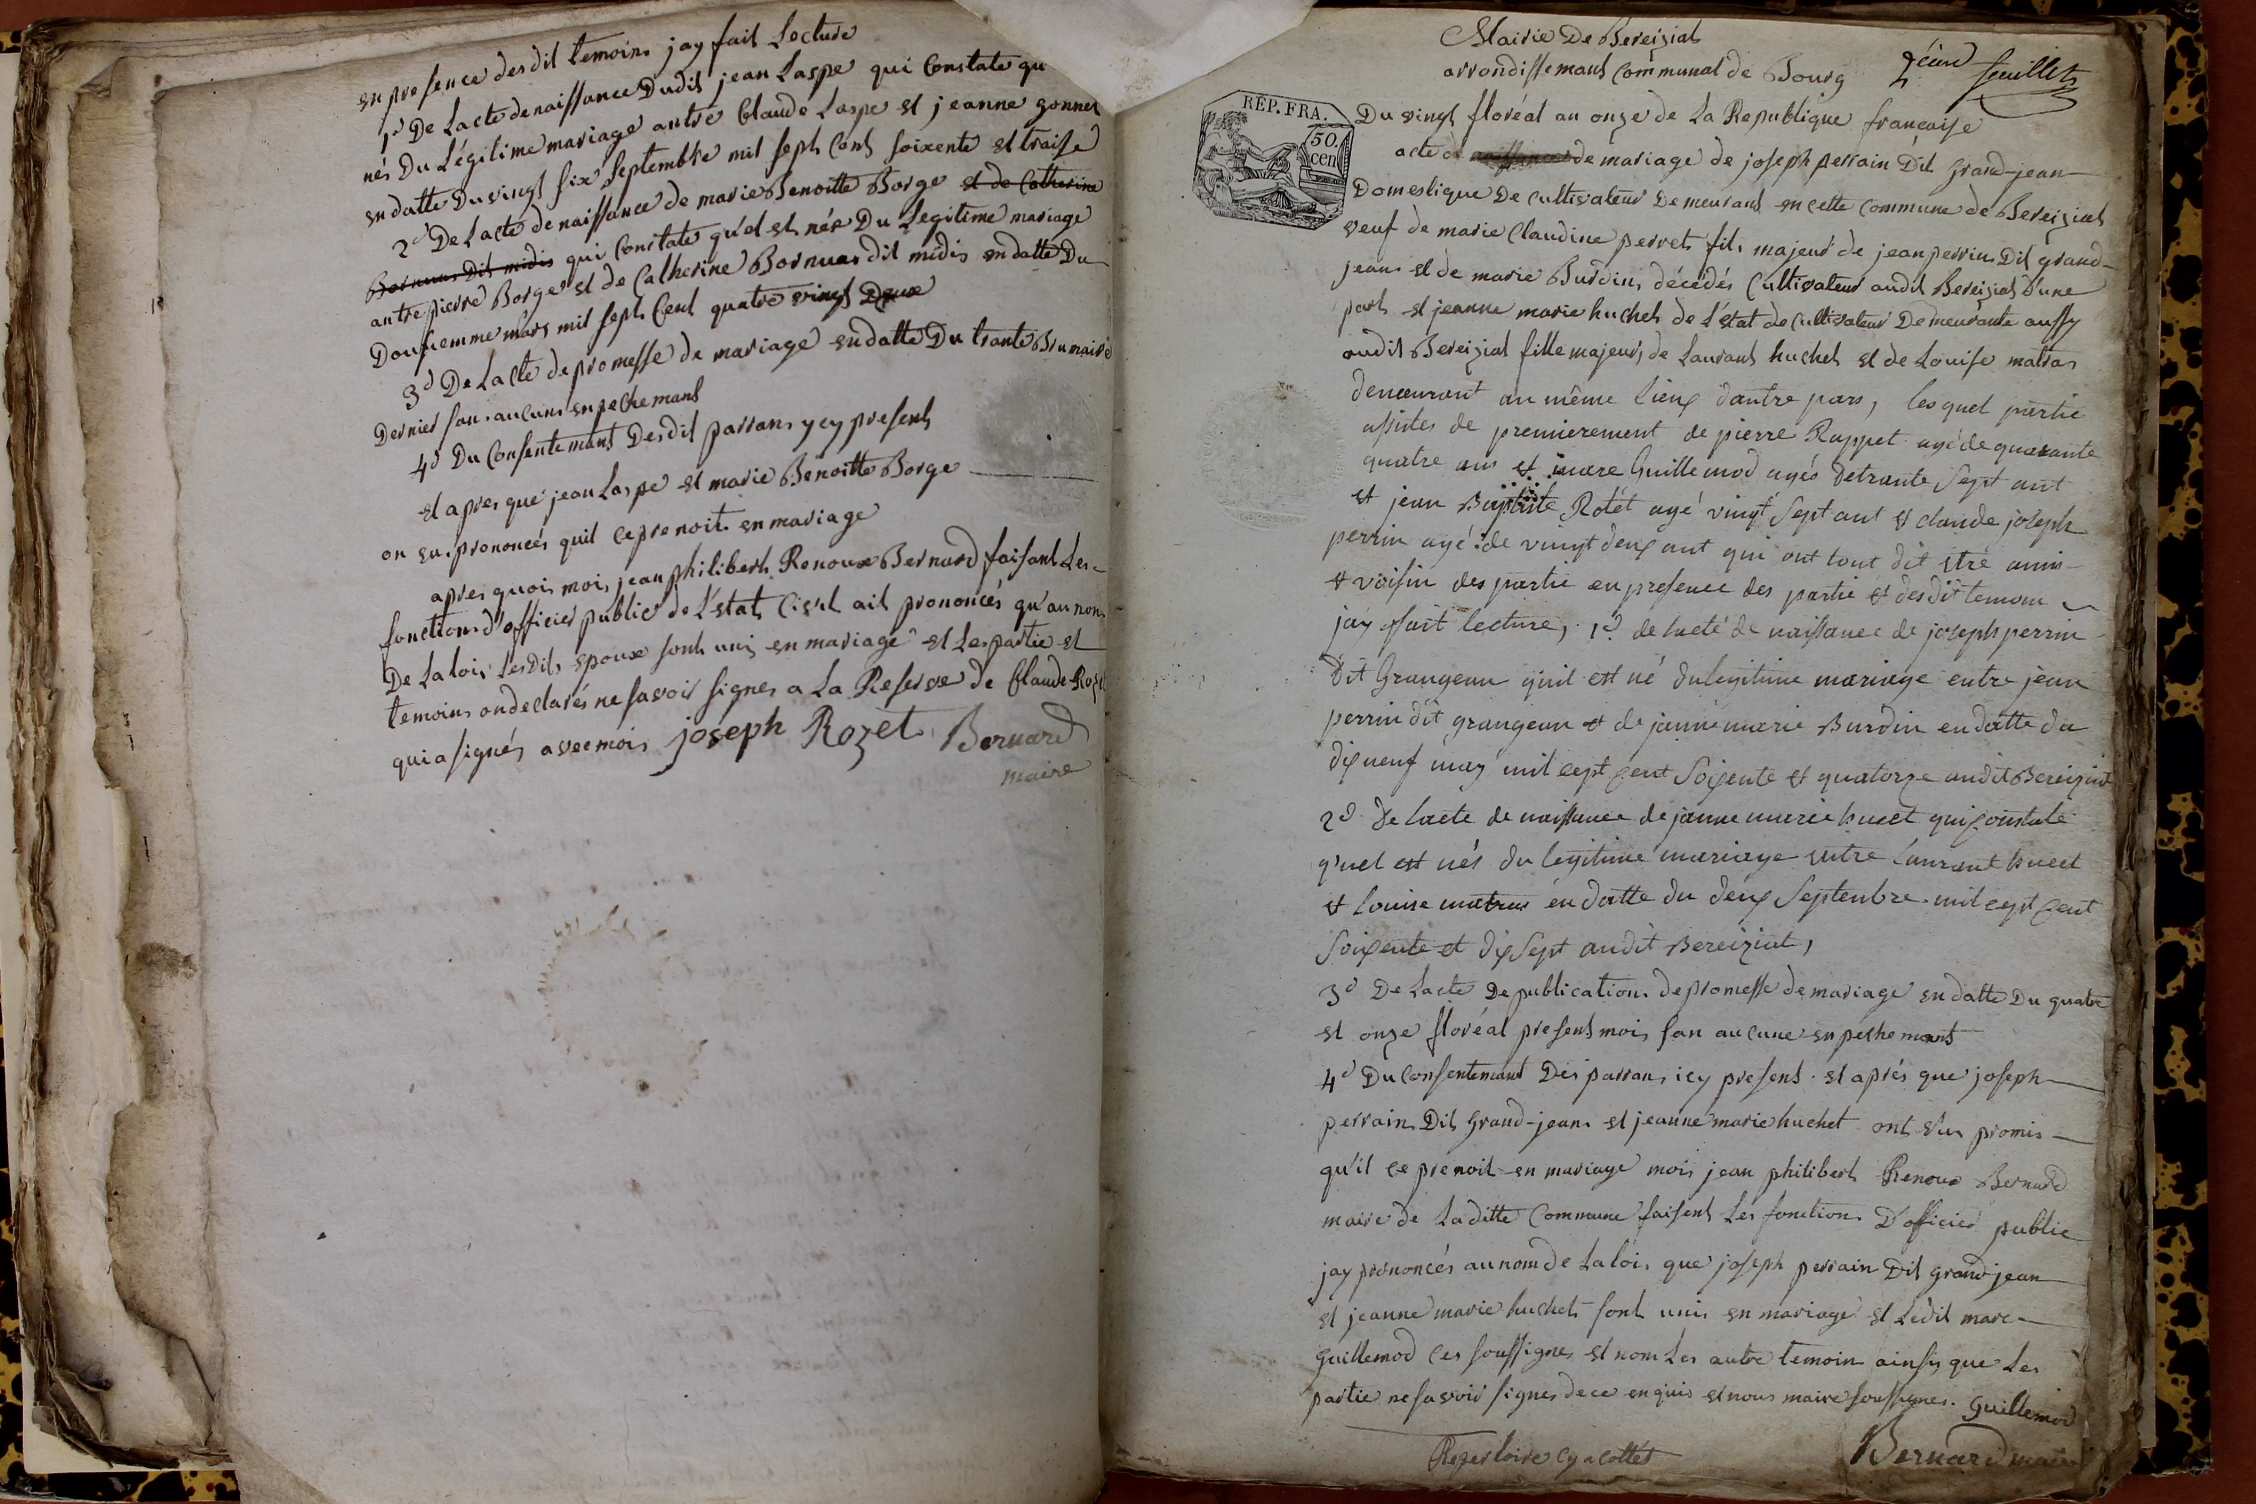 en presence desdit temoins jay fait Lecture
1.d De Lacte de naissance Dudit jean Laspe qui Constate qu
nés Du Légitime mariage antre Claude Laspe et jeanne gonnet
en datte Du vingt six Septembre mil sept Cent soixente et traise
2.d De Lacte de naissance de marie Benoitte Borge et de Catherine
Bornuas Dit midis qui Constate qu'el et née Du Legitime mariage
antre pierre Borge et de Catherine Bornuas dit midis en datte Du
Douziemme mars mil sept Cent quatre vingt Deux
3.d De Lacte de promesse de mariage en datte Du trante Brumaire
Dernier sans aucuns enpechemant
4.d Du Consentemant Desdit parrans ycy present
et apres que jean Laspe et marie Benoitte Borge
on eu prononcés quil ce prenoit en mariage
apres quoi moi jean philibert Renoux Bernard faisant Les
fonctions d'officier public de L'état Civil ait prononcés qu'au nom
De La loi Lesdits epoux sont unis en mariage et Les partie et
temoins on declarés ne savoir signer a La Reserve de Claude Roze
qui a signés avec moi joseph Rozet Bernard
maire
Mairie De Bereiziat
arrondissemant Communal de Bourg 2.éme feuillet
RÉP. FRA.
50.
cen
Du vingt floréal an onze de La Republique francaise
acte de naissance de mariage de joseph perrain Dit grand-jean
Domestique De cultivateur Demeurant en cette Commune de Bereiziat
veuf de marie Claudine perret fils majeur de jean perrin Dit grand-
jean et de marie Burdin, décédés Cultivateur audit Bereiziat d'une
part et jeanne marie huchet de l'état de Cultivateur Demeurante aussy
audit Bereiziat fille majeur, de Laurant huchet et de Louise matras
demeurant au même lieux dautre pars, lesquel partie
assistes de premierement de pierre Rappet agé de quarante
quatre ans et marc Guillemod agés detrante Sept ant
et jean Baptiste Rolét agé vingt Sept ant et claude joseph
perrin agé de vingt deux ant qui ont tout dit etre amis
et voisin des partie en presence des partie et desdit temoin
jáy fait lecture, 1.d de lacté de naissance de joseph perrin
dit Grangean quil est né du legitime mariage entre jean
perrin dit grangean et de janne marie Burdin en datte du
dix neuf may mil cept cent Soixente et quatorze audit Bereiziat
2.d de lacte de naissance de janne marie huect qui constate
q'uel est nés du legitime mariage entre laurant huect
et louise matras en datte du deux Septenbre mil cept cent
Soixente et dix Sept audit Bereiziat,
3.d De Lacte De publication de promesse de mariage en datte Du quatre
et onze floréal present mois san aucune enpechemant
4.d Du Consentemant Des parrans icy present. et aprés que joseph
perrain Dit Grand-jean et jeanne marie huchet ont eus promis
qu'il ce prenoit en mariage moi jean philibert Renoux Bernard
maire de Laditte Commune faisent Les fonctions D'officier public
jay prononcés au nom de La loi que joseph perrain Dit grand jean
et jeanne marie huchet sont unis en mariage et Ledit marc
Guillemod Ces soussignes et nom Les autre temoin ainsy que Les
partie ne savoir signes de ce enquis et nous maire soussignes. Guillemod
Bernard maire
Repertoire Cy a Cottés